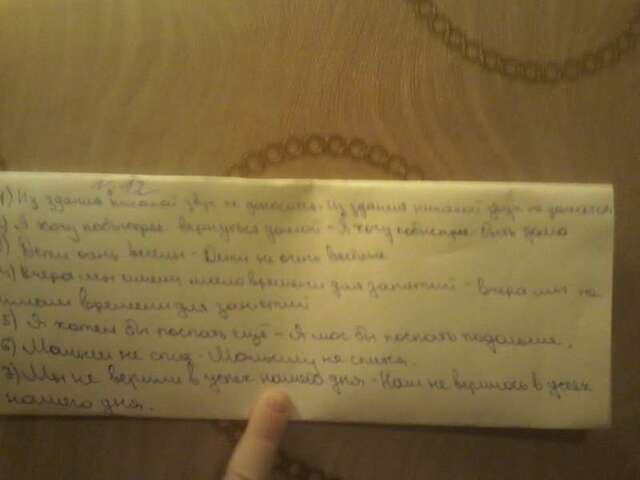 № 12
1) Из здания никакой звук не доносился. Из здания никакой звук не
) Я хочу побыстрее вернуться домой - Я хочу побыстрее быть дома
) Дети очень весёлые - Дети не очень весёлые.
4) Вчера мы имели время для занятий - Вчера мы не
имели времени для занятий
5) Я хотел бы поспать ещё - Я мог бы поспать подольше.
6) Малыш не спит - Малышу не спится.
7) Мы не верили в успех нашего дня - Нам не верилось в успех
нашего дня.